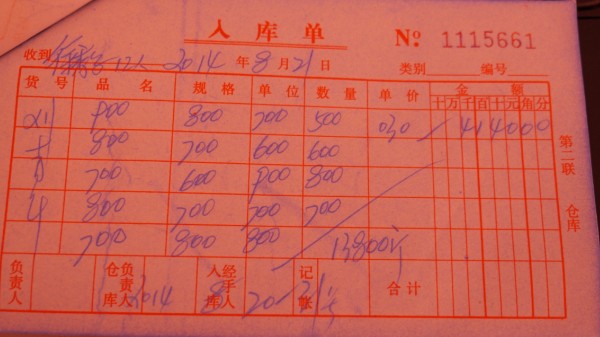 入库单 № 1115661
收到 12人 2014年8月21日 类别 编号
货号 品名 规格 单位 数量 单价 金额
十万千百十元角分
800 700 500 030 414000
800 700 600 600
700 600 800
800 700 700 700
700 800 800 13800斤
第二联 仓库
负责人 仓库负责人 2014 入库经手人 8 20-21号 记帐 合计